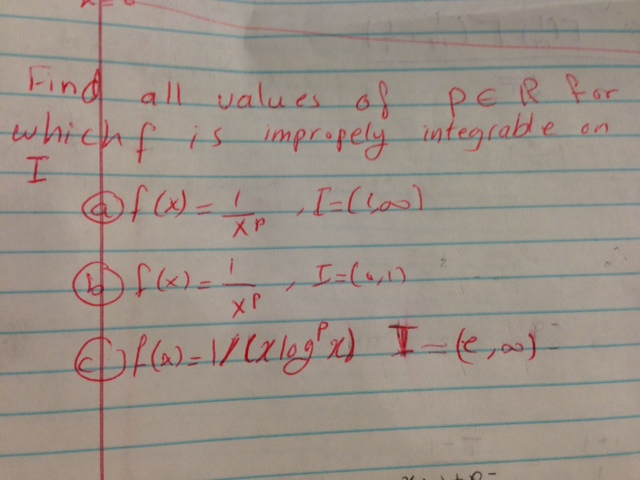 Find all values of p ∈ R for
which f is impropely integrable on
I
ⓐ f(x) = 1/x^p , I=(1,∞)
ⓑ f(x) = 1/x^p , I=(0,1)
ⓒ f(x) = 1/(x log^p x) I = (e,∞)